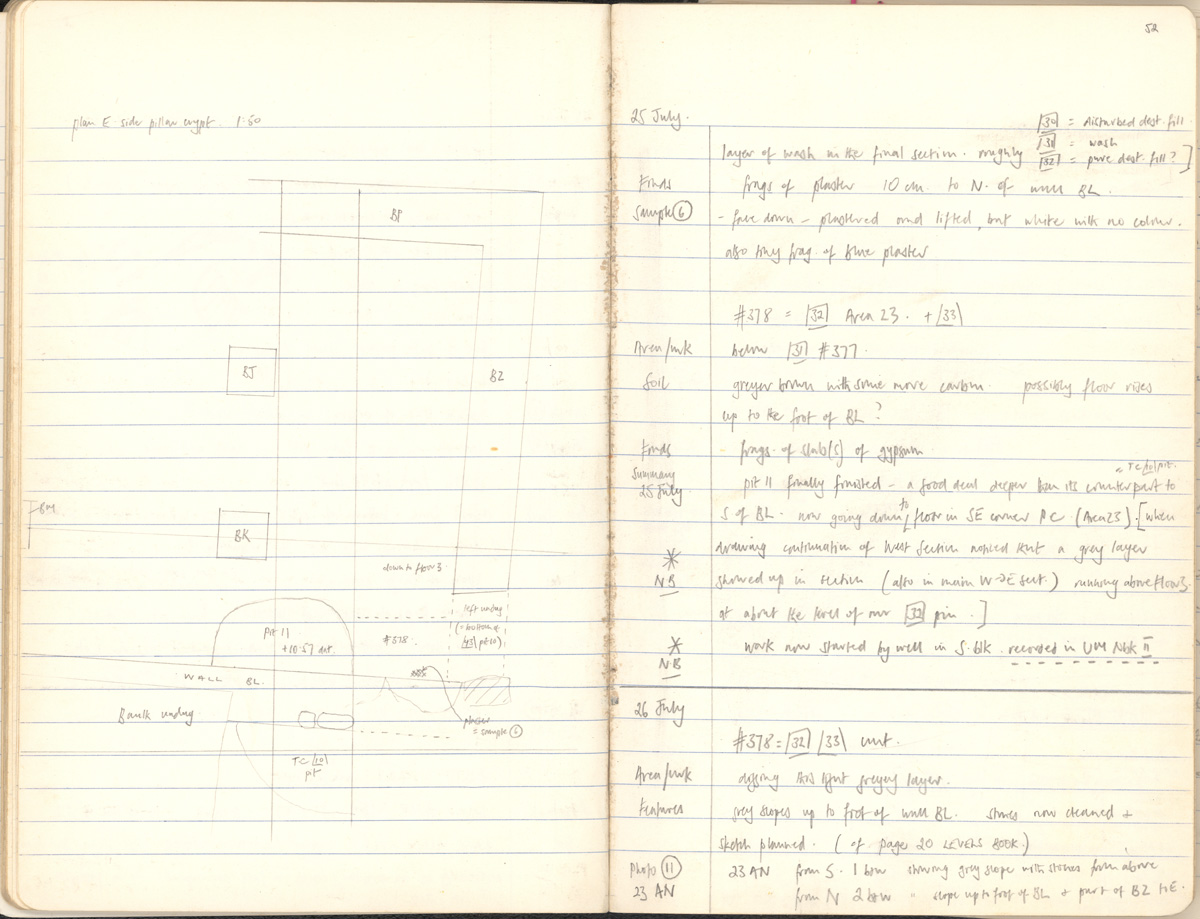 plan E side pillar crypt. 1:50
BP
BJ
BZ
BM
BK
down to floor 3
left undug
(= bottom of
pit 11
+10.57 dat.
#378.
WALL BL.
Baulk undug
plaster
= sample 6
TC 10
pit
52
25 July.
130 = disturbed dest. fill.
131 = wash
132 = pure dest. fill?
layer of wash in the final section. roughly
Finds frags of plaster 10 cm. to N. of wall BL.
Sample 6 - face down - plastered and lifted, but white with no colour.
also tiny frag. of blue plaster
#378 = 132 Area 23. + 133
Area/wk below 131 #377.
Soil greyer brown with some more carbon. possibly floor rises
up to the foot of BL?
Finds frags. of slab(s) of gypsum
= TC 10 pit.
Summary
25 July pit 11 finally finished - a good deal deeper than its counterpart to
S of BL. now going down to floor in SE corner PC (Area 23). [when
drawing continuation of West Section noticed that a grey layer
* NB showed up in section (also in main W→E sect.) running above floor 3.
at about the level of our 132 pin.]
* NB work now started by well in S. blk. recorded in UM Nbk II
26 July
#378 = 132 133 cont.
Area/wk digging this light greyey layer.
Features grey slopes up to foot of wall BL. stones now cleaned +
sketch planned. (cf page 20 LEVELS BOOK.)
Photo 11 23 AN from S. 1 b+w showing grey slope with stones from above
23 AN from N 2 b+w " slope up to foot of BL + part of BZ to E.